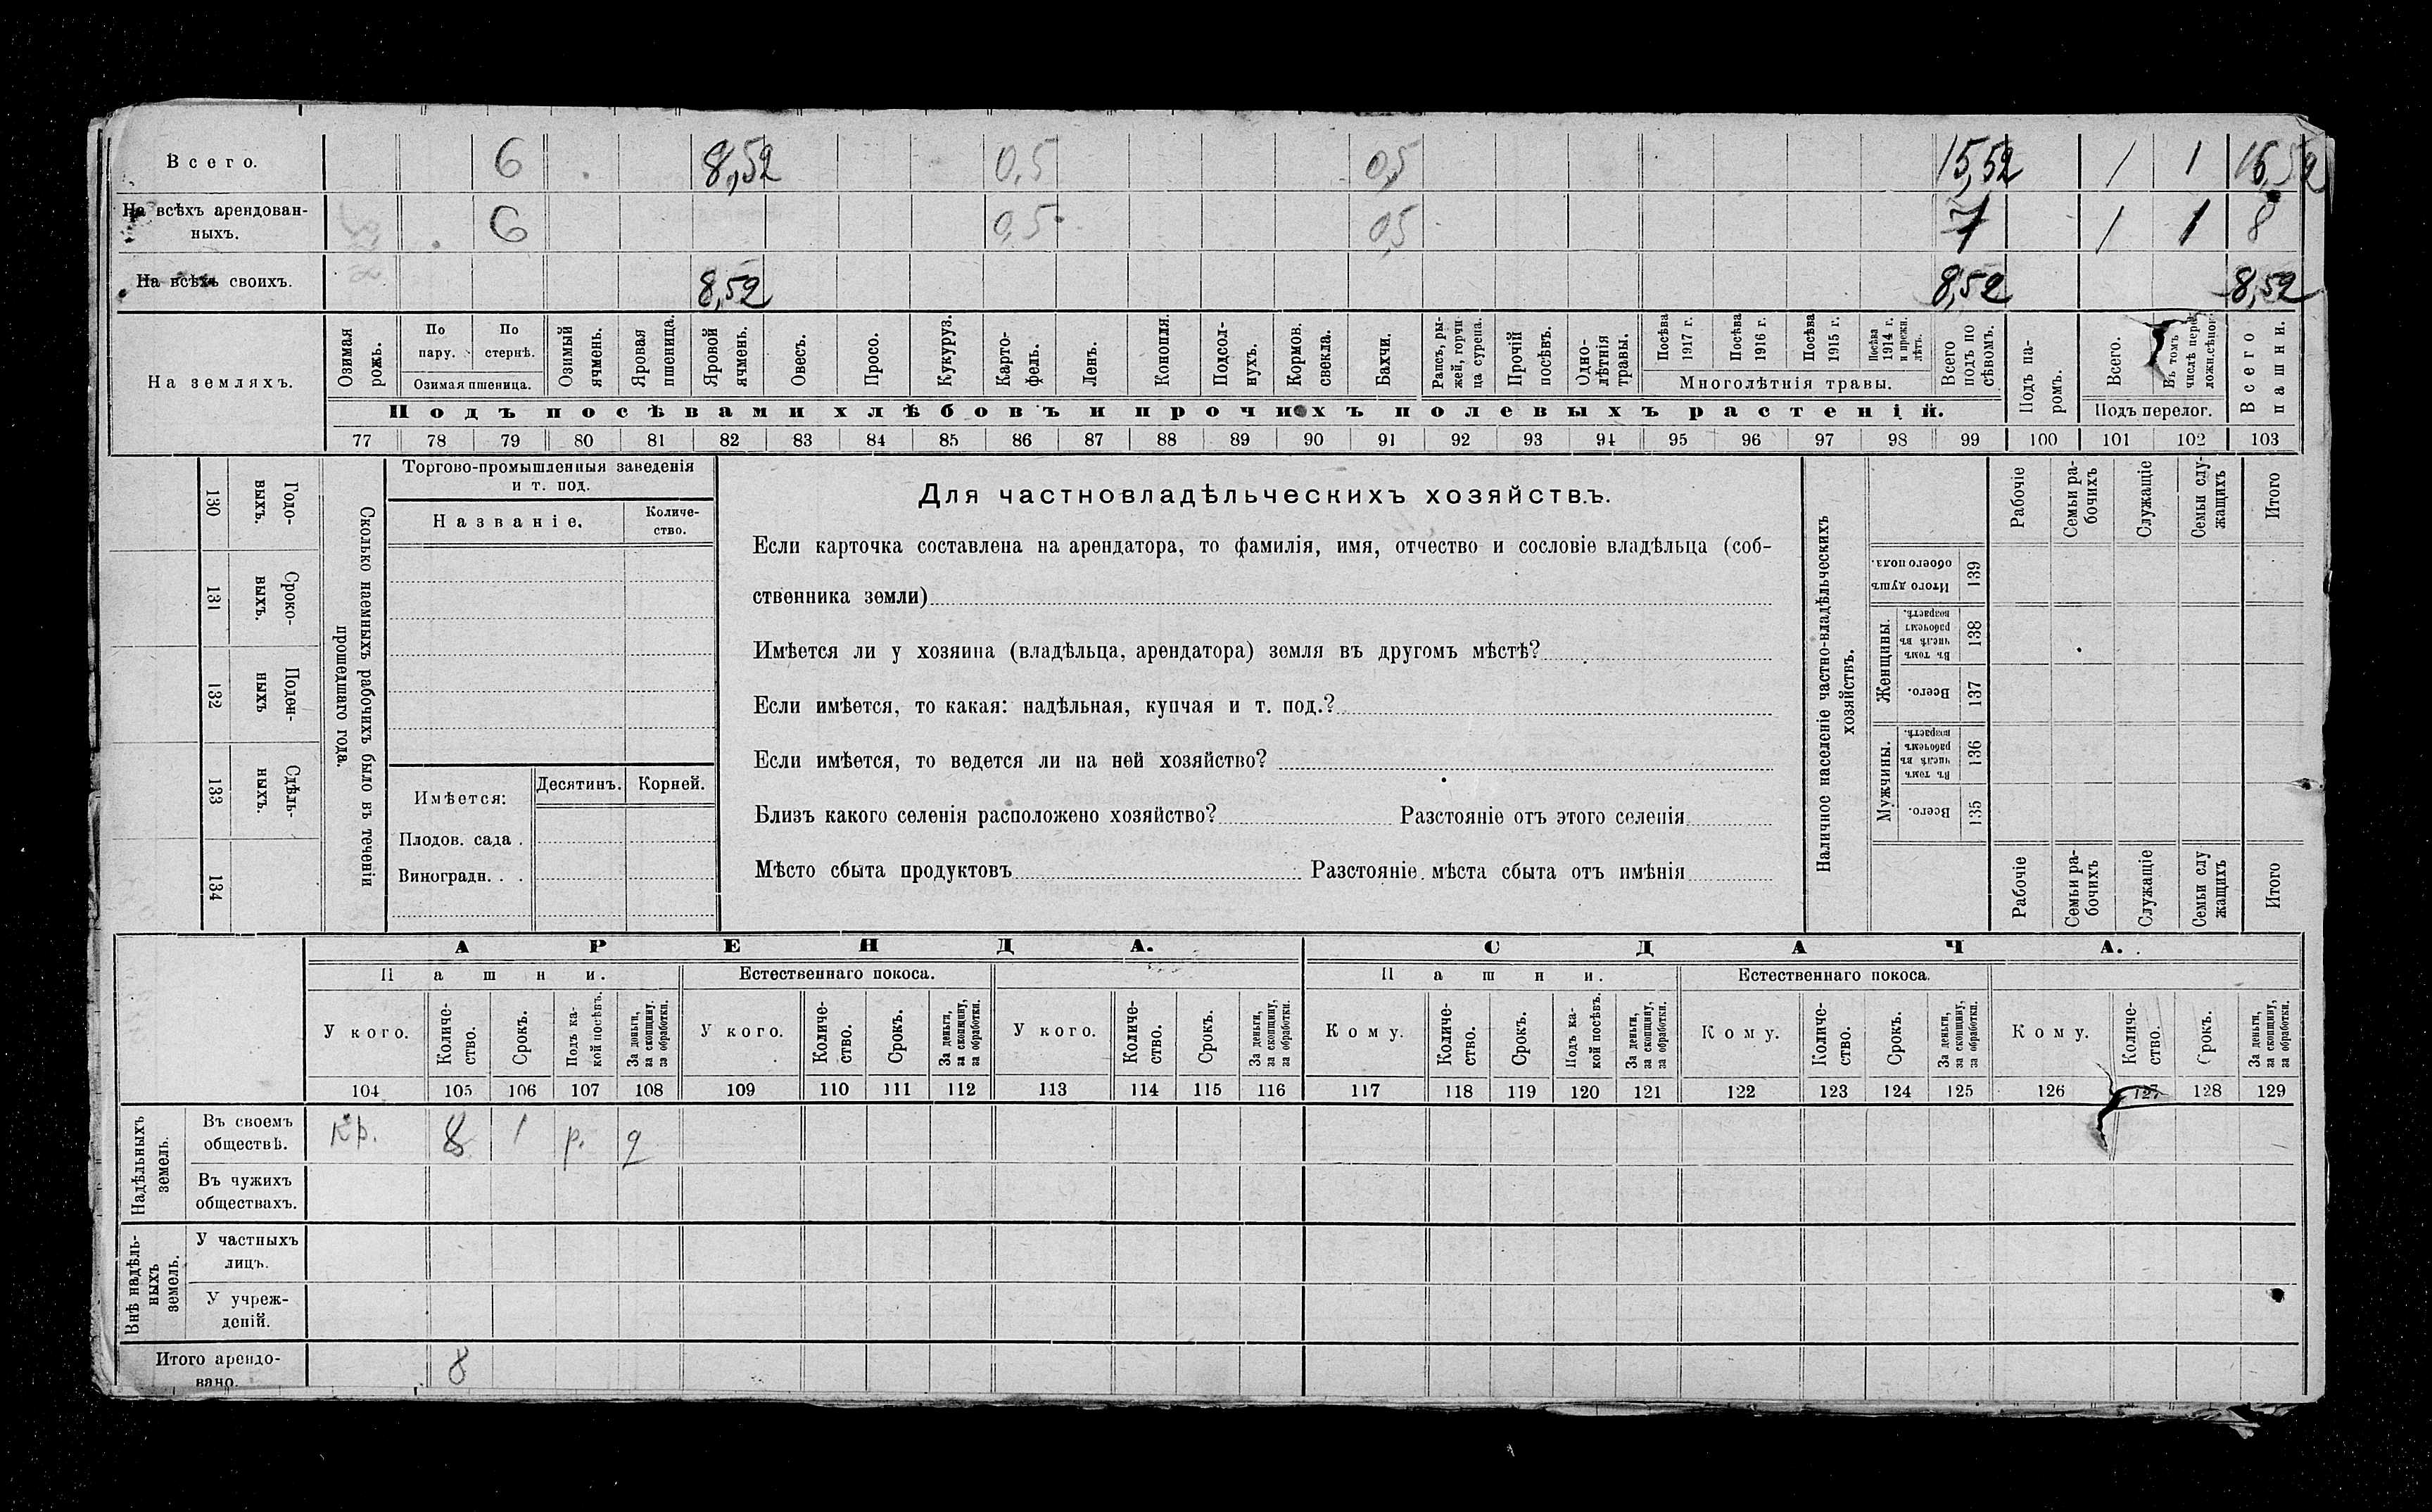 Всего. 6 8,52 0,5 0,5 15,52 1 1 16,52
На всѣхъ арендован-
ныхъ. 6 0,5 0,5 7 1 1 8
На всѣхъ своихъ. 8,52 8,52 8,52
На земляхъ.
Озимая рожь.
По пару.
По стернѣ.
Озимая пшеница.
Озимый ячмень.
Яровая пшеница.
Яровой ячмень.
Овесъ.
Просо.
Кукуруз.
Карто-
фель.
Ленъ.
Конопля.
Подсол-
нухъ.
Кормов. свекла.
Бахчи.
Рапсъ, ры-
жей, горчи
ца сурепа.
Прочій посѣвъ.
Одно-
лѣтнія травы.
Посѣва 1917 г.
Посѣва 1916 г.
Посѣва 1915 г.
Посѣва 1914 г. и прежн. лѣтъ.
Многолѣтнія травы.
Всего подъ по
сѣвомъ.
Подъ посѣвами хлѣбовъ и прочихъ полевыхъ растеній.
Подъ па-
ромъ.
Всего.
Въ томъ числѣ
Подъ перелог.
Всего пашни.
77 78 79 80 81 82 83 84 85 86 87 88 89 90 91 92 93 94 95 96 97 98 99 100 101 102 103
130 Годо-
выхъ.
131 Сроко-
выхъ.
132 Поден-
ныхъ
133 Сдѣль-
ныхъ.
134
Сколько наемныхъ рабочихъ было въ теченіи
прошедшаго года.
Торгово-промышленныя заведенія
и т. под.
Названіе.
Количе-
ство.
Имѣется:
Десятинъ.
Корней.
Плодов. сада .
Виноградн. . .
Для частновладѣльческихъ хозяйствъ.
Если карточка составлена на арендатора, то фамилія, имя, отчество и сословіе владѣльца (соб-
ственника земли)
Имѣется ли у хозяина (владѣльца, арендатора) земля въ другомъ мѣстѣ?
Если имѣется, то какая: надѣльная, купчая и т. под.?
Если имѣется, то ведется ли на ней хозяйство?
Близъ какого селенія расположено хозяйство? Разстояніе отъ этого селенія
Мѣсто сбыта продуктовъ Разстояніе мѣста сбыта отъ имѣнія
Наличное населеніе частно-владѣльческихъ
хозяйствъ.
Итого душъ обоего пола. 139
Женщины.
Въ томъ числѣ въ рабочемъ возрастѣ. 138
Всего. 137
Мужчины.
Въ томъ числѣ въ рабочемъ возрастѣ. 136
Всего. 135
Рабочіе
Семьи ра-
бочихъ
Служащіе
Семьи слу-
жащихъ
Итого
Рабочіе
Семьи ра-
бочихъ
Служащіе
Семьи слу
жащихъ
Итого
АРЕНДА.
СДАЧА.
Пашни.
Естественнаго покоса.
Пашни.
Естественнаго покоса.
У кого.
Количе-
ство.
Срокъ.
Подъ ка-
кой посѣвъ.
За деньги, за скопщину, за обработки.
У кого.
Количе-
ство.
Срокъ.
За деньги, за скопщину, за обработки.
У кого.
Количе-
ство.
Срокъ.
За деньги, за скопщину, за обработки.
Кому.
Количе-
ство.
Срокъ.
Подъ ка-
кой посѣвъ.
За деньги, за скопщину, за обработки.
Кому.
Количе-
ство.
Срокъ.
За деньги, за скопщину, за обработки.
Кому.
Количе-
ство.
Срокъ.
За деньги, за скопщину, за обработки.
104 105 106 107 108 109 110 111 112 113 114 115 116 117 118 119 120 121 122 123 124 125 126 127 128 129
Надѣльныхъ
земель.
Въ своемъ
обществѣ. кр. 8 1 р.
Въ чужихъ
обществахъ.
Внѣ надѣль-
ныхъ
земель.
У частныхъ
лицъ.
У учреж-
деній.
Итого арендо-
вано. 8